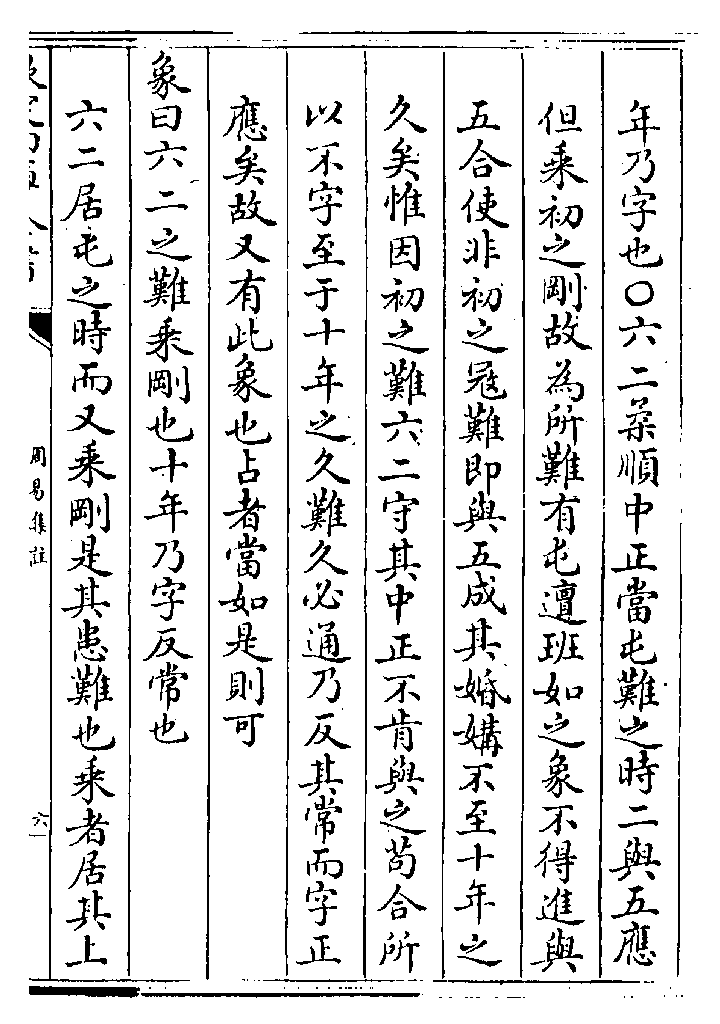 年乃字也○六二柔順中正當屯難之時二與五應
但乘初之剛故為所難有屯邅班如之象不得進與
五合使非初之冦難即與五成其婚媾不至十年之
久矣惟因初之難六二守其中正不肯與之苟合所
以不字至于十年之久難久必通乃反其常而字正
應矣故又有此象也占者當如是則可
象曰六二之難乘剛也十年乃字反常也
六二居屯之時而又乘剛是其患難也乘者居其上
周易集註